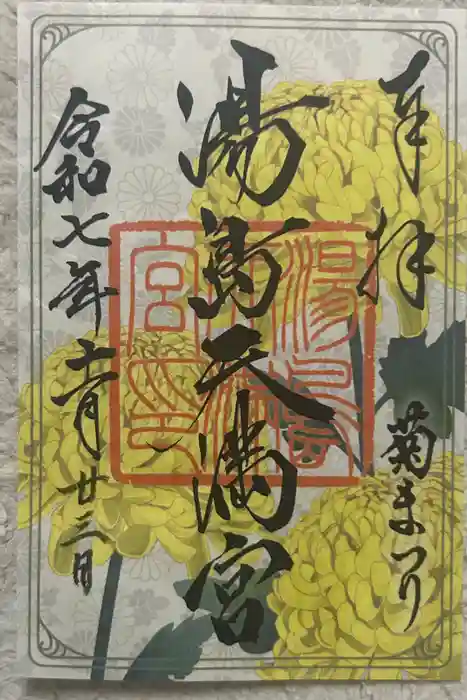 奉拝
菊まつり
湯島天満宮
湯島
天満
宮印
令和七年十一月廿三日